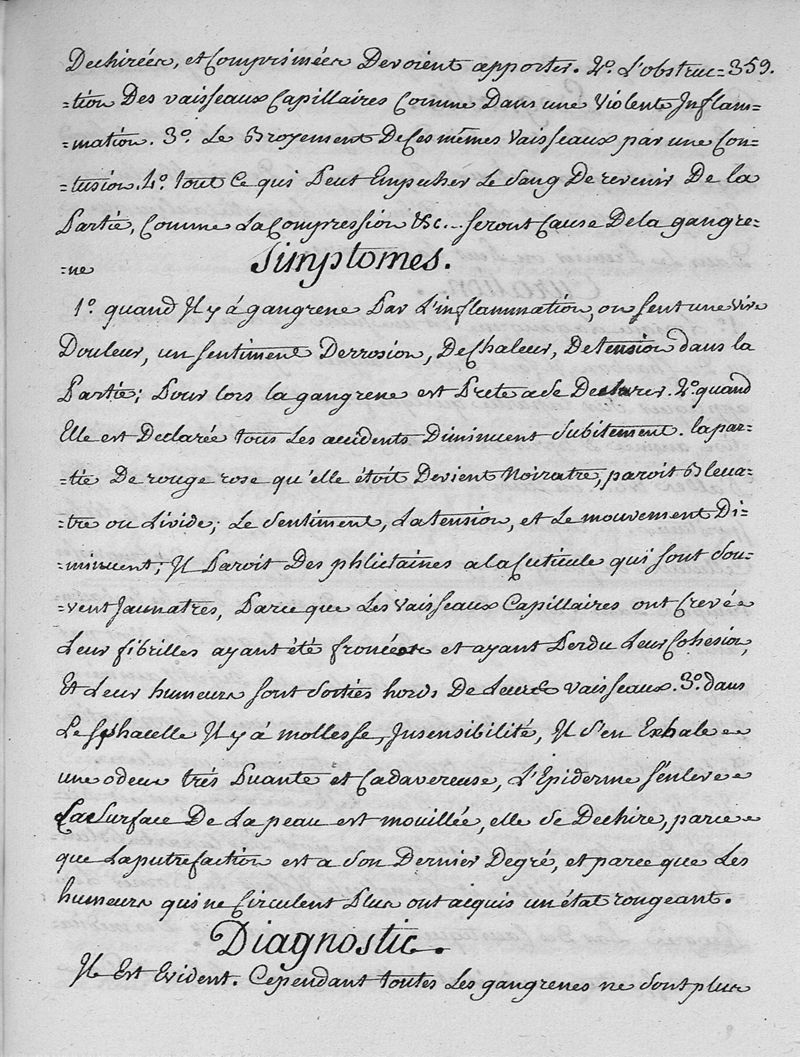 Dechirées, et Comprimées Devoient apporter. 2.º L'obstruc= 359.
=tion Des vaisseaux Capillaires Comme Dans une Violente Inflam=
=mation. 3.º Le Broyement De Ces mêmes Vaisseaux par une Con=
=tusion. 4.º tout Ce qui Peut Empecher Le Sang De revenir De la
Partie, Comme La Compression &c... seront Cause De la gangre=
=ne
Simptomes.
1.º quand Il y á gangrene Par L'inflammation, on sent une vive
Douleur, un sentiment D'errosion, De Chaleur, De tension dans la
Partie; Pour lors la gangrene est Prete a se Declarer. 2.º quand
Elle est Declarée tous Les accidents Diminuent Subitement. la par=
=tie De rouge rose qu'elle étoit Devient Noiratre, paroit Bleua=
=tre ou Livide; Le Sentiment, La tension, et Le mouvement Di=
=minuent; Il Paroit Des phlictaines a la Cuticule qui sont Sou=
=vent Jaunatres, Parce que Les Vaisseaux Capillaires ont Crevé
Leur fibrilles ayant été froncées et ayant Perdu Leur Cohesion,
Et Leur humeurs sont Sorties hors De Leurs vaisseaux. 3.º dans
Le Sphacelle Il y á mollesse, Insensibilité, Il S'en Exhale
une odeur trés Puante et Cadavereuse, L'Epiderme S'enleve
La Surface De La peau est mouillée, elle Se Dechire, parce
que La putrefaction est a Son Dernier Degré, et parce que Les
humeurs qui ne Circulent Plus ont acquis un état rongeant.
Diagnostic.
Il Est Evident. Cependant toutes Les gangrenes ne Sont plus